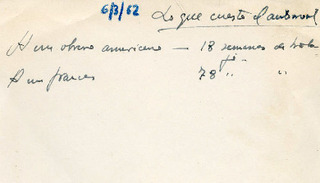 6/3/62
Lo que cuesta el automovil
A un obrero americano — 18 semanas de trabajo
A un frances 78 " "